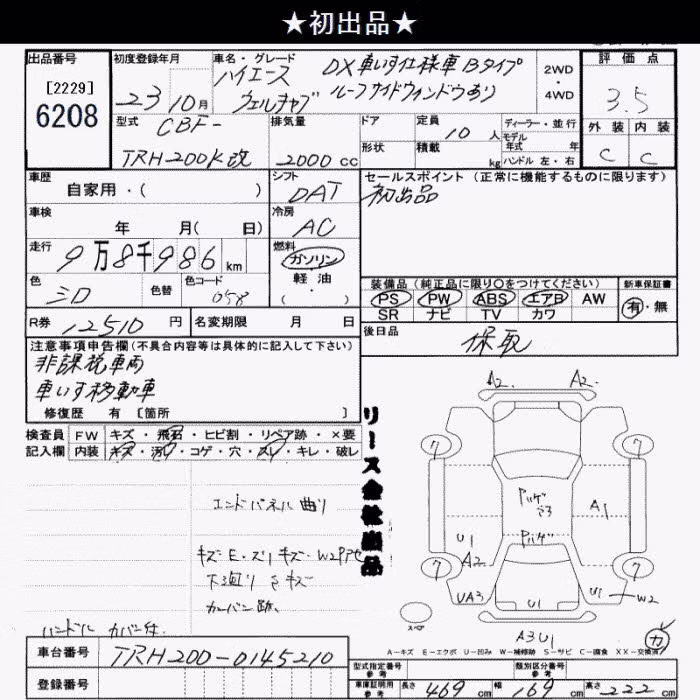 ★初出品★
出品番号
[2229]
6208
初度登録年月
23 10月
車名・グレード
ハイエース DX 車いす仕様車Bタイプ
ウェルキャブ ルーフサイドウィンドウあり
2WD
4WD
評価点
3.5
外装 内装
C C
型式
CBF-
TRH200K改
排気量
2000cc
ドア
形状
定員 10人
積載 kg
ディーラー・並行
モデル年式 年
ハンドル 左・右
車歴
自家用・( )
シフト
DAT
セールスポイント(正常に機能するものに限ります)
初出品
車検
年 月( 日)
冷房
AC
走行
9万8千986km
燃料
ガソリン
軽油
( ・ )
色
シロ
色替
色コード
058
装備品(純正品に限り○をつけてください)
PS PW ABS エアB AW
SR ナビ TV カワ
新車保証書
有・無
R券 12510円
名変期限 月 日
後日品
保取
注意事項申告欄(不具合内容等は具体的に記入して下さい)
非課税車両
車いす移動車
修復歴 有 [箇所 ]
検査員 FW キズ・飛石・ヒビ割・リペア跡・×要
記入欄 内装 キズ・汚れ・コゲ・穴・スレ・キレ・破レ
リース会社出品
エンドパネル曲り
キズE・ズリキズ・W2P他
下廻りサキズ
カーバン跡、
ハンドル カバー付.
A2. A2.
7 7
ハゲ
A1
ハゲ
U1
A2
7 7
UA3
U1
U1 W2
スペア
A3U1
カ
A-キズ E-エクボ U-凹み W-補修跡 S-サビ C-腐食 XX-交換済
車台番号 TRH200-0145210
登録番号
型式指定番号
参考
類別区分番号
参考
車庫証明用
参考
長さ 469cm 幅 169cm 高さ 222cm